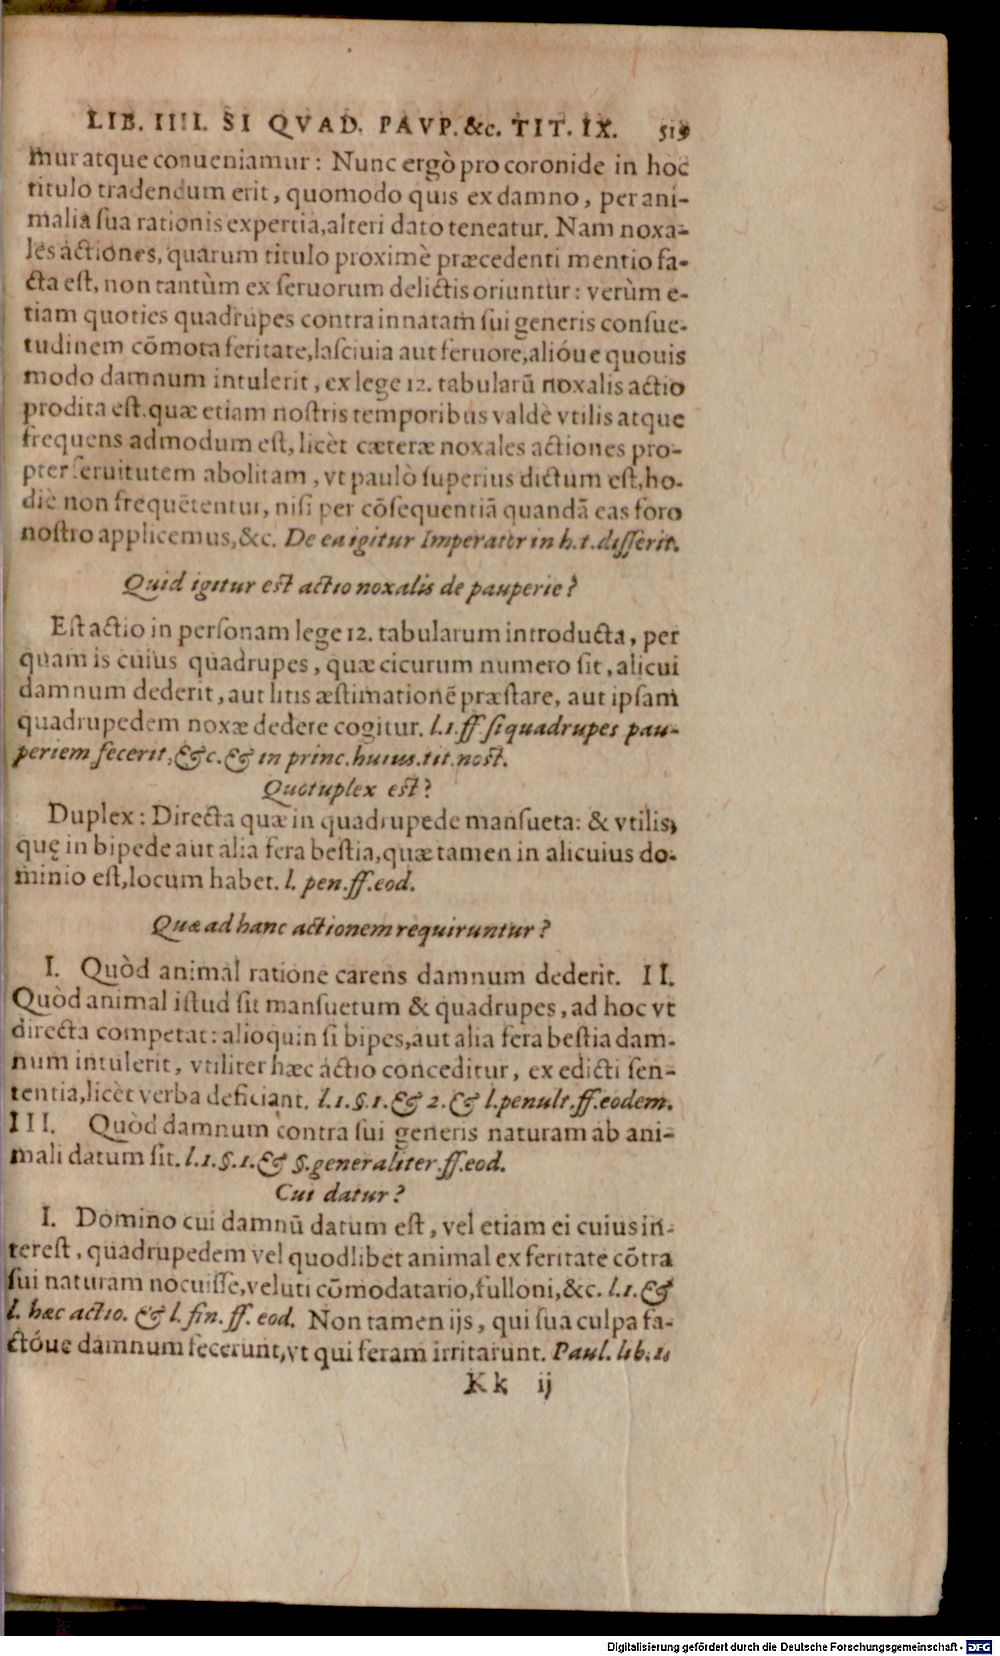 LIB. IIII. SI QVAD. PAVP. &c. TIT. IX. 519
muratque conueniamur: Nunc ergò pro coronide in hoc
titulo tradendum erit, quomodo quis ex damno, per ani-
malia sua rationis expertia, alteri dato teneatur. Nam noxa-
les actiones, quarum titulo proximè præcedenti mentio fa-
cta est, non tantùm ex seruorum delictis oriuntur: verùm e-
tiam quoties quadrupes contra innatam sui generis consue-
tudinem cōmota feritate, lasciuia aut feruore, alióue quouis
modo damnum intulerit, ex lege 12. tabularū noxalis actio
prodita est. quæ etiam nostris temporibus valdè vtilis atque
frequens admodum est, licèt cæteræ noxales actiones pro-
pter seruitutem abolitam, vt paulò superius dictum est, ho-
die non frequētentur, nisi per cōsequentiā quandā eas foro
nostro applicemus, &c. De ea igitur Imperator in h. t. disserit.
Quid igitur est actio noxalis de pauperie?
Est actio in personam lege 12. tabularum introducta, per
quam is cuius quadrupes, quæ cicurum numero sit, alicui
damnum dederit, aut litis æstimationē præstare, aut ipsam
quadrupedem noxæ dedere cogitur. l.1.ff. si quadrupes pau-
periem fecerit, &c. & in princ. huius. tit. nost.
Quotuplex est?
Duplex: Directa quæ in quadrupede mansueta: & vtilis,
quę in bipede aut alia fera bestia, quæ tamen in alicuius do-
minio est, locum habet. l. pen. ff. eod.
Quæ ad hanc actionem requiruntur?
I. Quòd animal ratione carens damnum dederit. II.
Quòd animal istud sit mansuetum & quadrupes, ad hoc vt
directa competat: alioquin si bipes, aut alia fera bestia dam-
num intulerit, vtiliter hæc actio conceditur, ex edicti sen-
tentia, licèt verba deficiant. l.1.§.1. & 2. & l. penult. ff. eodem.
III. Quòd damnum contra sui generis naturam ab ani-
mali datum sit. l.1.§.1. & §. generaliter ff. eod.
Cui datur?
I. Domino cui damnū datum est, vel etiam ei cuius in-
terest, quadrupedem vel quodlibet animal ex feritate cōtra
sui naturam nocuisse, veluti cōmodatario, fulloni, &c. l.1. &
l. hæc actio. & l. fin. ff. eod. Non tamen ijs, qui sua culpa fa-
ctóue damnum fecerunt, vt qui feram irritarunt. Paul. lib. 1.
Kk ij
Digitalisierung gefördert durch die Deutsche Forschungsgemeinschaft - DFG